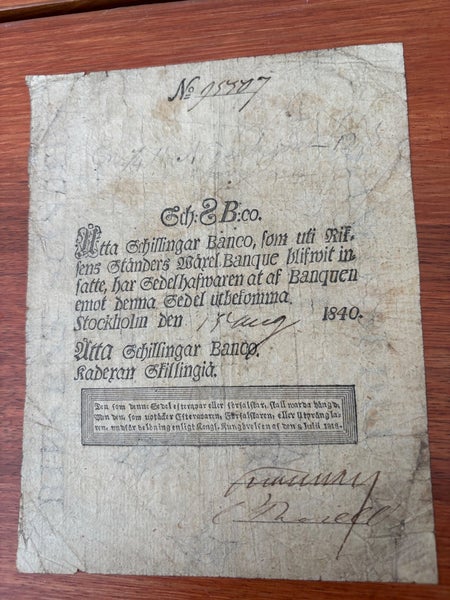 No 95507
Sch: 8 B:co.
Åtta Schillingar Banco, som uti Rik-
sens Ständers Wäxel Banque blifwit in-
satte, har Sedelhafwaren at af Banquen
emot denna Sedel utbekomma.
Stockholm den 15 Aug 1840.
Åtta Schillingar Banco.
Kadexan Skillingiä.
Den som denne Sedel eftergör eller förfalskar, skall warda hängd,
Men den, som uptäcker Eftergöraren, Förfalskaren, eller Utprångla-
ren, undfår belöning enligt Kongl. Kungörelsen af den 8 Julii 1818.